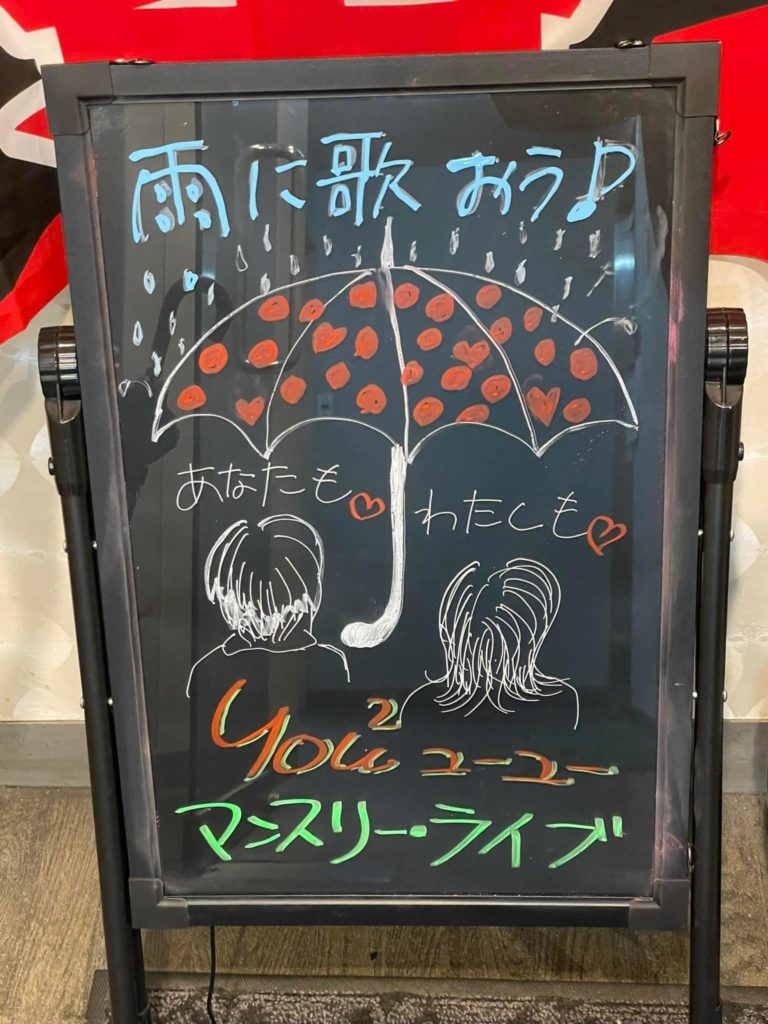 雨に歌おう♪
あなたも♡ わたしも♡
you² ユーユー
マンスリー・ライブ